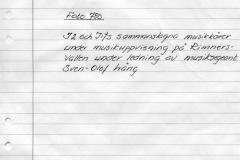 Foto 780.
I2 och I15 sammanslagna musikkårer
under musikuppvisning på Rimners-
vallen under ledning av musiksergeant
Sven-Olof Lång